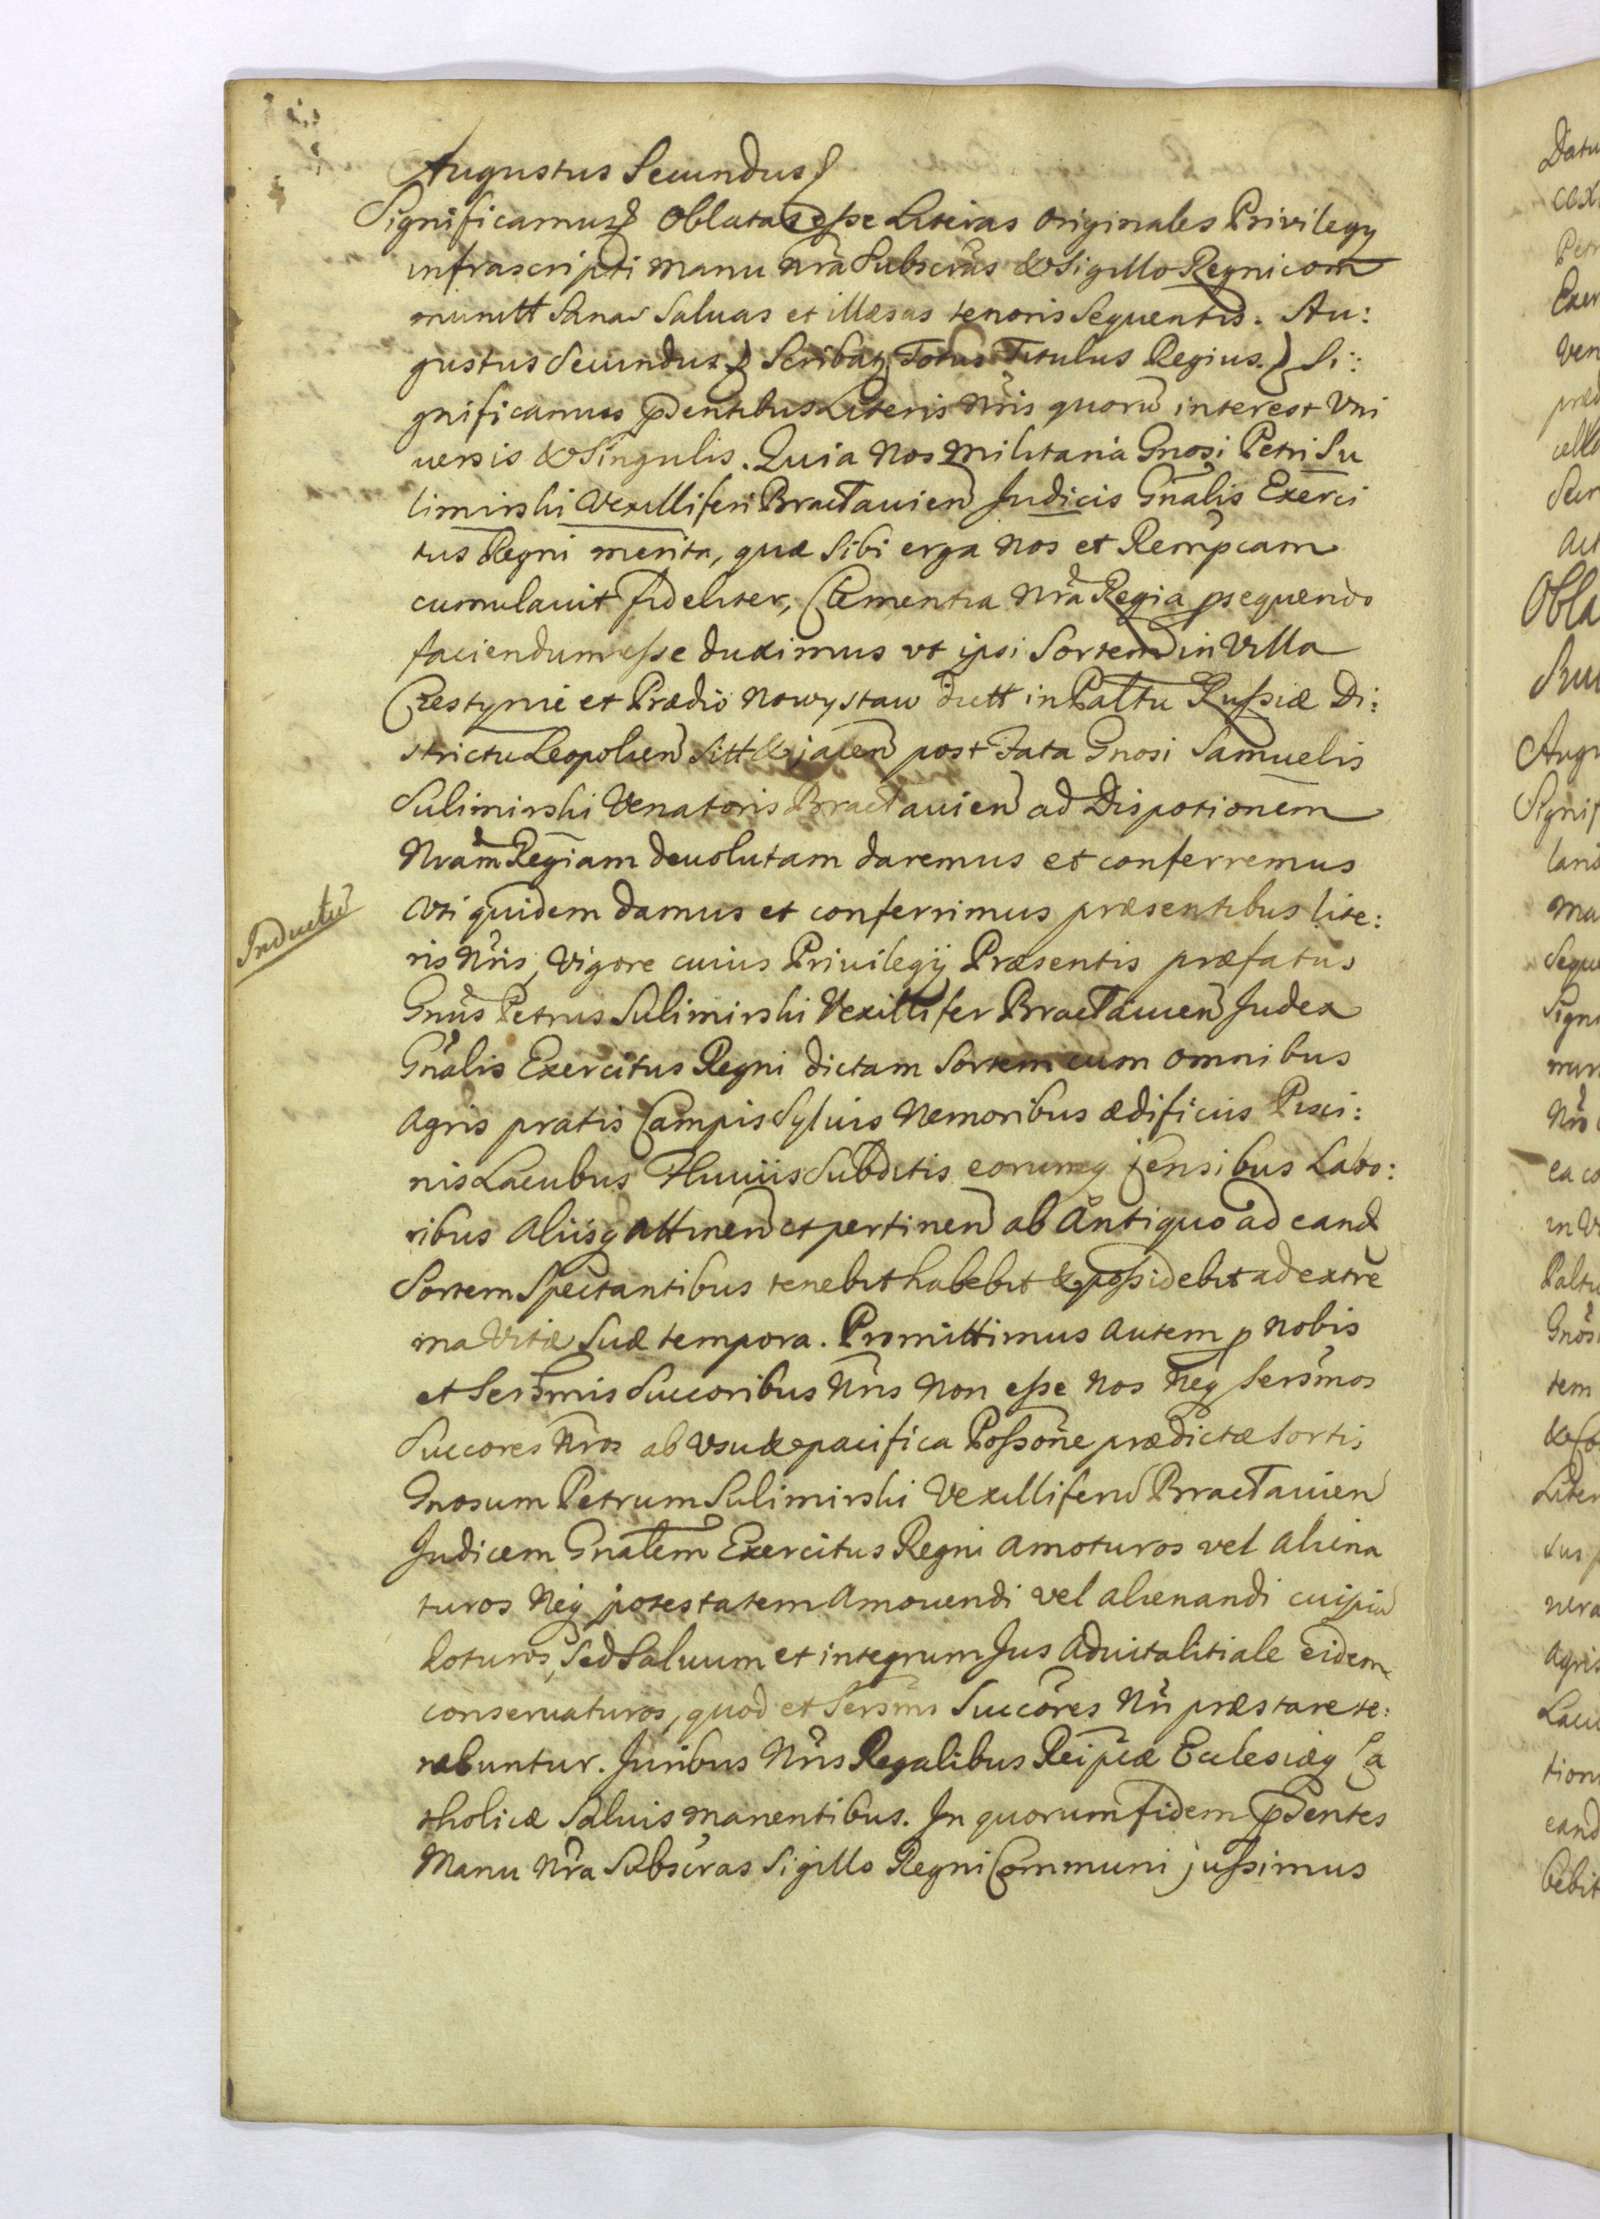 Augustus Secundus
Significamus Oblatas esse Literas Originales Privilegy
infrascripti manu nrã Subscras & Sigillo Regni com
munitt Sanas Saluas et illæsas tenoris Sequentis. Au:
gustus Secundus Scribatz Totus Titulus Regius. Si:
gnificamus psentibus Literis Nris quorũ interest Vni
uersis & Singulis. Quia Nos Militaria Gnosi Petri Su
limirski Vexilliferi Bractauien Judicis Gñalis Exerci
tus Regni merita, quæ Sibi erga Nos et Rempcam
cumulauit fideliter, Clementia Nrã Regia psequendo
faciendum esse duximus vt ipsi Sortem in Villa
Czestynie et Prædio Nowystaw dictt in Paltu Russiæ Di:
strictu Leopolien Sitt & jacen post Fata Gnosi Samuelis
Sulimirski Venatoris Bractauien ad Dispotionem
Nram Regiam deuolutam daremus et conferremus
Vti quidem damus et conferrimus præsentibus lite:
Inductũ
ris Nris, Vigore cuius Priuilegij Præsentis præfatus
Gnus Petrus Sulimirski Vexillifer Bractauien Judex
Gñalis Exercitus Regni dictam Sortem cum omnibus
Agris pratis Campis Syluis Nemoribus ædificiis Pisci:
nis Lacubus Fluuiis Subditis eorumq censibus Labo:
ribus Aliisq Attinen et pertinen ab Antiquo ad eand
Sortem Spectantibus tenebit habebit & possidebit ad extre
ma Vitæ Suæ tempora. Promittimus Autem p nobis
et Sersmis Succoribus Nris Non esse Nos Neq Sersmos
Succores Nros ab Vsu & pacifica Possone prædictæ Sortis
Gnosum Petrum Sulimirski Vexilliferũ Bractauien
Judicem Gnalem Exercitus Regni Amoturos vel Aliena
turos Neq potestatem Amouendi vel alienandi cuipiã
daturos, Sed Saluum et integrum Jus Aduitalitiale eidem
conseruaturos, quod et Sersmi Succores Nri præstare te:
nebuntur. Juribus Nris Regalibus Reipcæ Eclesiæq Ca
tholicæ Saluis manentibus. In quorum fidem psentes
Manu Nra Subscras Sigillo Regni Communi jussimus